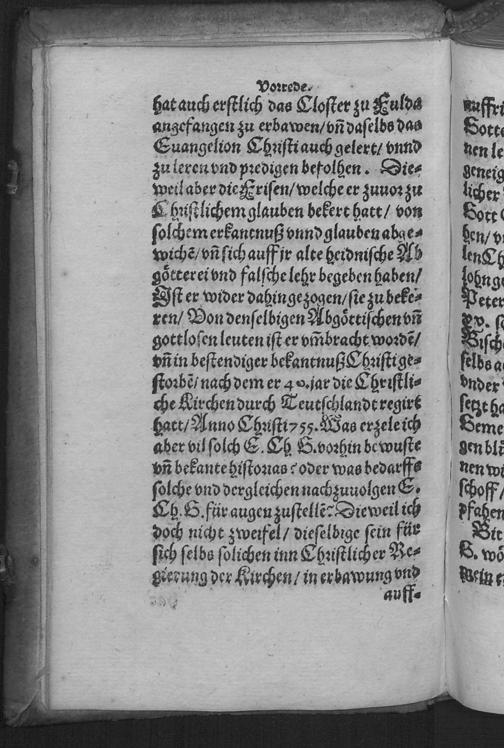 Vorrede.
hat auch erstlich das Closter zu Fulda
angefangen zu erbawen/ vñ daselbs das
Euangelion Christi auch gelert/ vnnd
zu leren vnd predigen befolhen. Die-
weil aber die Frisen/ welche er zuuor zu
Christlichem glauben bekert hatt/ von
solchem erkantnuß vnnd glauben abge-
wichē/ vñ sich auff jr alte heidnische Ab
götterei vnd falsche lehr begeben haben/
Ist er wider dahin gezogen/ sie zu beke-
ren/ Von denselbigen Abgöttischen vñ
gottlosen leuten ist er vm̄bracht wordē/
vñ in bestendiger bekantnuß Christi ge-
storbē/ nach dem er 40. jar die Christli-
che Kirchen durch Teutschlandt regirt
hatt/ Anno Christi 755. Was erzele ich
aber vil solch E. Ch. G. vorhin bewuste
vñ bekante historias? oder was bedarffs
solche vnd dergleichen nachzuuolgen E.
Ch. G. für augen zustellē? Die weil ich
doch nicht zweifel/ dieselbige sein für
sich selbs solichen inn Christlicher Re-
gierung der Kirchen/ in erbawung vnd
auff-
auffri
Gotte
nen le
geneig
licher
Gott
hen/ v
len Ch
lohn g
Peter
xv. s
Bisch
selbs a
vnder
setzt ha
Geme
gen blü
nen wi
schoff/
pfahen
Bit
G. wö